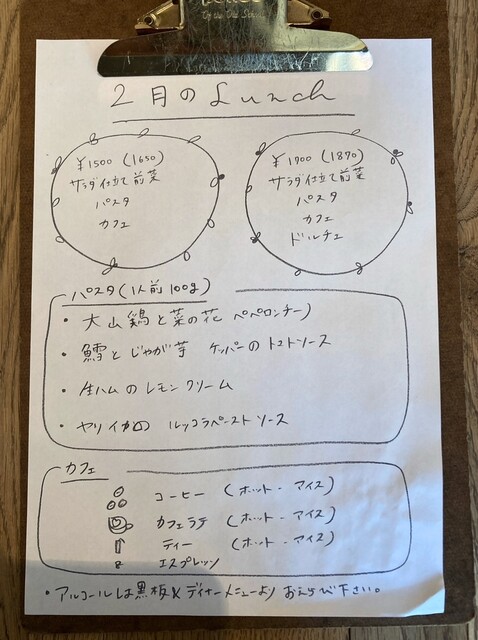 2月のLunch
￥1500 (1650)
サラダ仕立て前菜
パスタ
カフェ
￥1700 (1870)
サラダ仕立て前菜
パスタ
カフェ
ドルチェ
パスタ(1人前100g)
・大山鶏と菜の花 ペペロンチーノ
・鱈とじゃが芋 ケッパーのトマトソース
・生ハムのレモンクリーム
・ヤリイカの ルッコラペーストソース
カフェ
コーヒー (ホット・アイス)
カフェラテ (ホット・アイス)
ティー (ホット・アイス)
エスプレッソ
・アルコールは黒板&ディナーメニューより おえらび下さい。